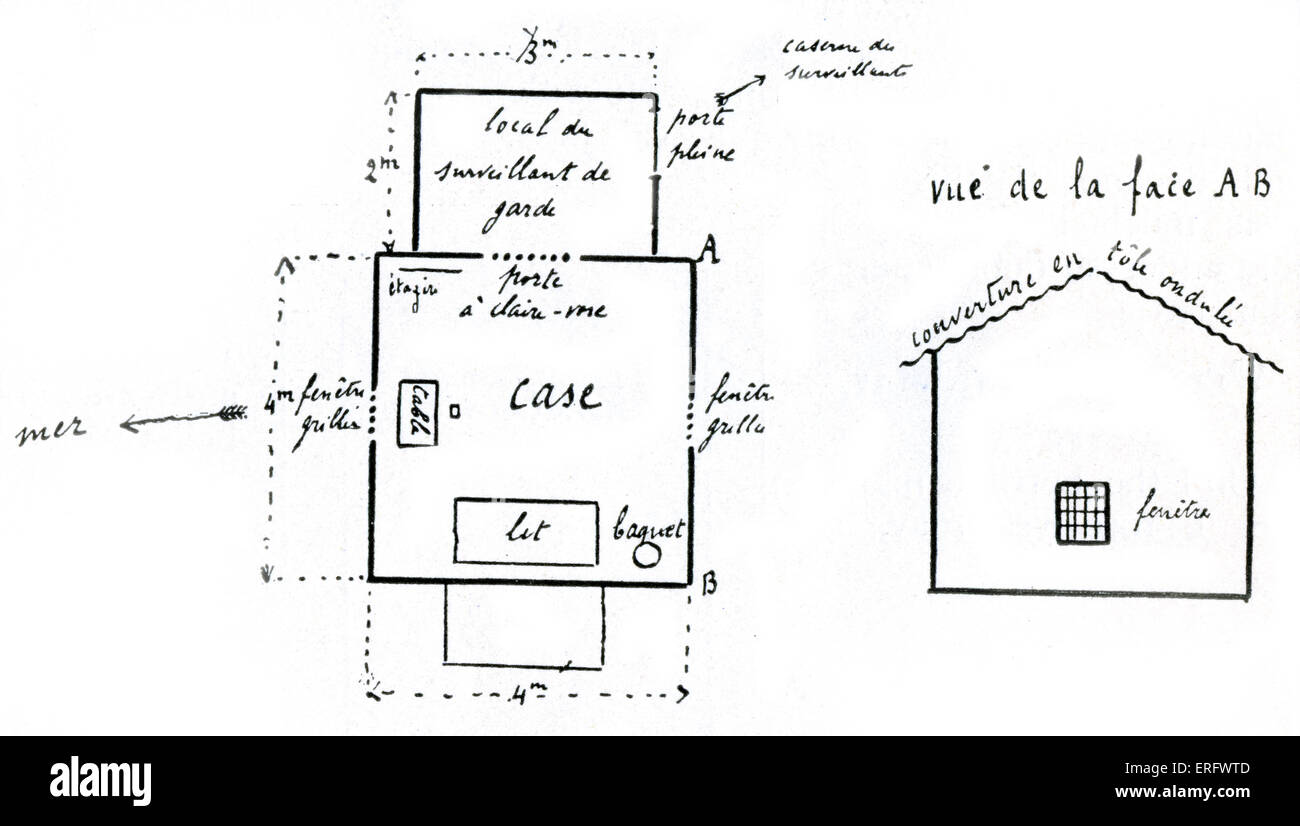 3m
caserne des
surveillants
2m
local du
surveillant de
garde
porte
pleine
vue de la face A B
A
étagère
porte
à claire-voie
couverture en tôle ondulée
4m
fenêtre
grillée
table
case
fenêtre
grillée
mer
lit
baquet
fenêtre
B
4m
alamy
Image ID: ERFWTD
www.alamy.com